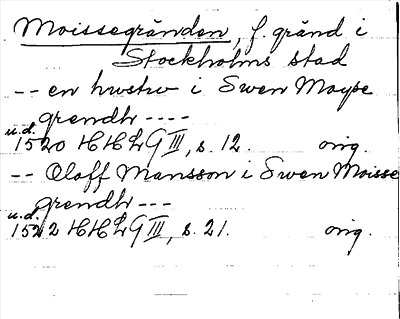 Moissegränden, f. gränd i
Stockholms stad
-- en hwstrw i Swen Moyse
grendh ----
u.d.
1520 HHLG III, s. 12. orig.
-- Oloff Mansson i Swen Moisse
grendh ---
u.d.
1522 HHLG III, s. 21. orig.